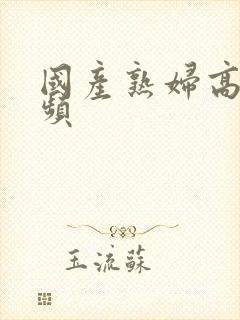 國產熟婦高
頻
玉流蘇